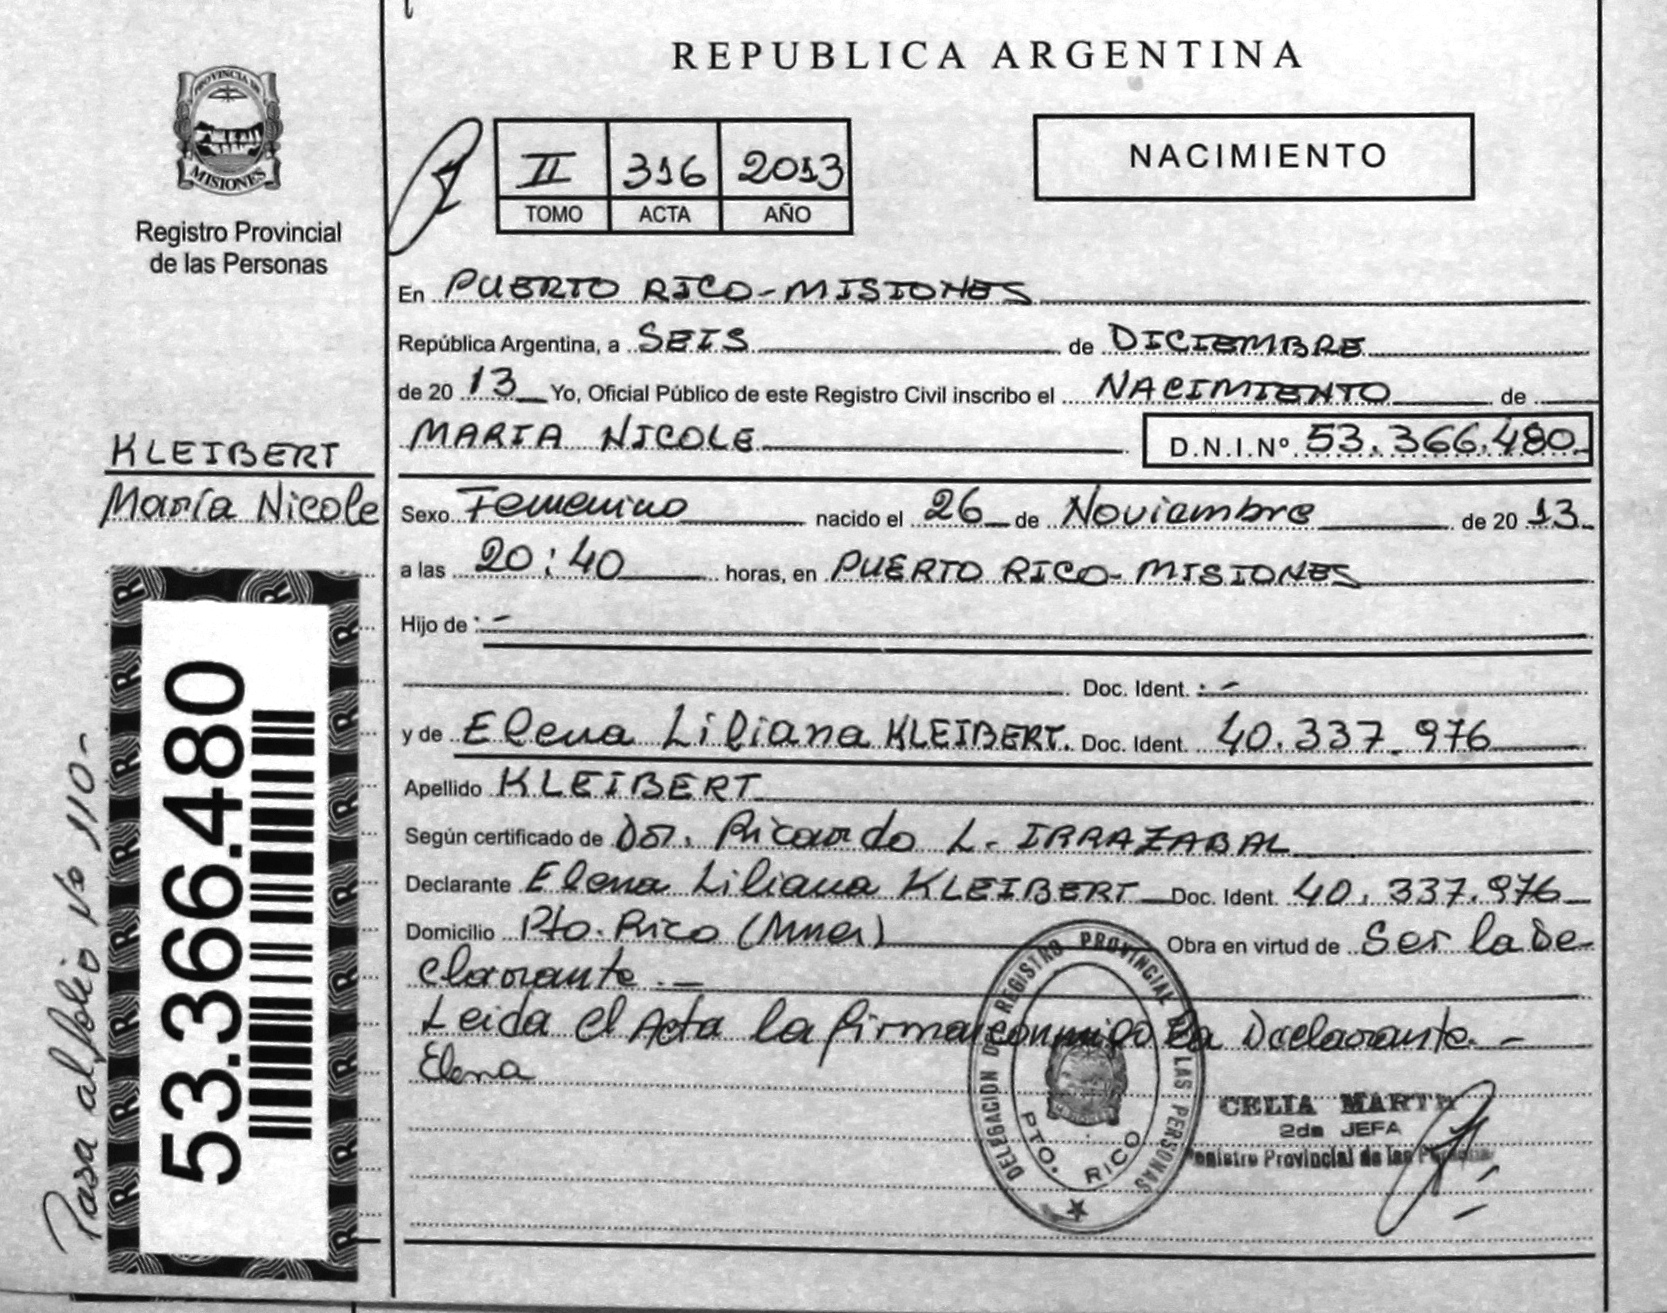 REPUBLICA ARGENTINA
PROVINCIA DE
MISIONES
Registro Provincial
de las Personas
II 316 2013
TOMO ACTA AÑO
NACIMIENTO
En PUERTO RICO-MISIONES
República Argentina, a SEIS de DICIEMBRE
de 20 13 Yo, Oficial Público de este Registro Civil inscribo el NACIMIENTO de
MARIA NICOLE D.N.I.Nº 53.366.480
KLEIBERT
María Nicole
Sexo Femenino nacido el 26 de Noviembre de 20 13
a las 20:40 horas, en PUERTO RICO-MISIONES
Hijo de :-
Doc. Ident. :-
y de Elena Liliana KLEIBERT. Doc. Ident. 40.337.976
Apellido KLEIBERT
Según certificado de Dr. Ricardo L. IRRAZABAL
Declarante Elena Liliana KLEIBERT Doc. Ident. 40.337.976
Domicilio Pto. Rico (Mnes) Obra en virtud de Ser la De-
clarante.-
Leida el Acta la firma conmigo la Declarante.-
Elena
53.366.480
Pasa al folio Nº 110-
DELEGACION DE REGISTRO PROVINCIAL DE LAS PERSONAS
PTO. RICO
CELIA MARTA
2da JEFA
Registro Provincial de las Personas